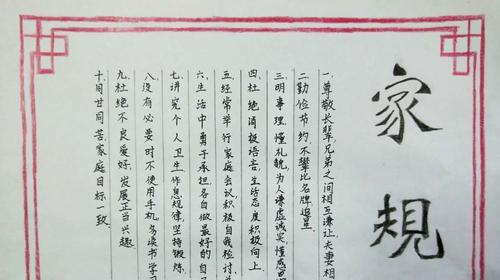 家规
一尊敬长辈兄弟之间相互谦让夫妻相
二勤俭节约,不攀比名牌追星
三明事理懂礼貌,为人谦虚诚实,懂感恩
四杜绝消极语言,生活态度积极向上
五经常举行家庭会议积极自我检讨
六生活中勇于承担各自做最好的自
七讲究个人卫生,作息规律,坚持锻炼
八没有必要时不使用手机,多读书学习
九杜绝不良爱好,发展正当兴趣
十同甘同苦家庭目标一致